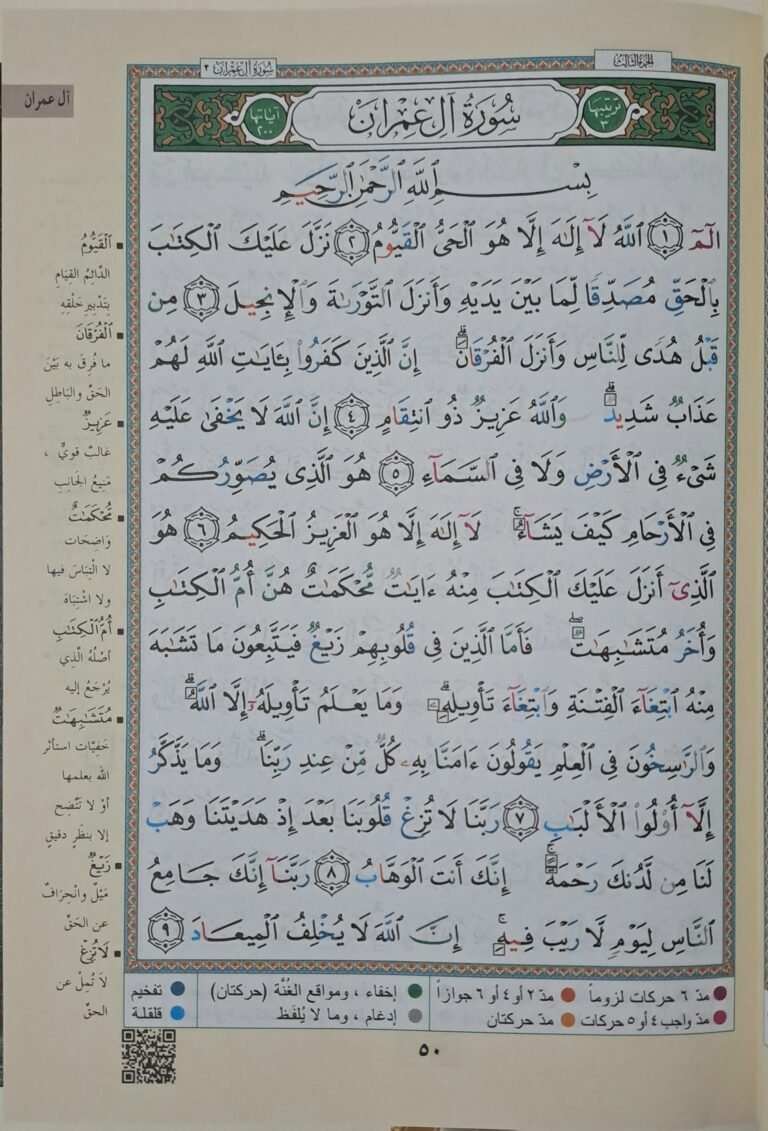 الجزء الثالث
سورة آل عمران ٣
آل عمران
ترتيبها ٣
سُورَةُ آلِ عِمْرَان
آياتها ٢٠٠
بِسْمِ ٱللَّهِ ٱلرَّحْمَٰنِ ٱلرَّحِيمِ
الٓمٓ ١ ٱللَّهُ لَآ إِلَٰهَ إِلَّا هُوَ ٱلْحَىُّ ٱلْقَيُّومُ ٢ نَزَّلَ عَلَيْكَ ٱلْكِتَٰبَ
بِٱلْحَقِّ مُصَدِّقًا لِّمَا بَيْنَ يَدَيْهِ وَأَنزَلَ ٱلتَّوْرَىٰةَ وَٱلْإِنجِيلَ ٣ مِن
قَبْلُ هُدًى لِّلنَّاسِ وَأَنزَلَ ٱلْفُرْقَانَ ۗ إِنَّ ٱلَّذِينَ كَفَرُوا۟ بِـَٔايَٰتِ ٱللَّهِ لَهُمْ
عَذَابٌ شَدِيدٌ ۗ وَٱللَّهُ عَزِيزٌ ذُو ٱنتِقَامٍ ٤ إِنَّ ٱللَّهَ لَا يَخْفَىٰ عَلَيْهِ
شَىْءٌ فِى ٱلْأَرْضِ وَلَا فِى ٱلسَّمَآءِ ٥ هُوَ ٱلَّذِى يُصَوِّرُكُمْ
فِى ٱلْأَرْحَامِ كَيْفَ يَشَآءُ ۚ لَآ إِلَٰهَ إِلَّا هُوَ ٱلْعَزِيزُ ٱلْحَكِيمُ ٦ هُوَ
ٱلَّذِىٓ أَنزَلَ عَلَيْكَ ٱلْكِتَٰبَ مِنْهُ ءَايَٰتٌ مُّحْكَمَٰتٌ هُنَّ أُمُّ ٱلْكِتَٰبِ
وَأُخَرُ مُتَشَٰبِهَٰتٌ ۖ فَأَمَّا ٱلَّذِينَ فِى قُلُوبِهِمْ زَيْغٌ فَيَتَّبِعُونَ مَا تَشَٰبَهَ
مِنْهُ ٱبْتِغَآءَ ٱلْفِتْنَةِ وَٱبْتِغَآءَ تَأْوِيلِهِۦ ۗ وَمَا يَعْلَمُ تَأْوِيلَهُۥٓ إِلَّا ٱللَّهُ ۗ
وَٱلرَّٰسِخُونَ فِى ٱلْعِلْمِ يَقُولُونَ ءَامَنَّا بِهِۦ كُلٌّ مِّنْ عِندِ رَبِّنَا ۗ وَمَا يَذَّكَّرُ
إِلَّآ أُو۟لُوا۟ ٱلْأَلْبَٰبِ ٧ رَبَّنَا لَا تُزِغْ قُلُوبَنَا بَعْدَ إِذْ هَدَيْتَنَا وَهَبْ
لَنَا مِن لَّدُنكَ رَحْمَةً ۚ إِنَّكَ أَنتَ ٱلْوَهَّابُ ٨ رَبَّنَآ إِنَّكَ جَامِعُ
ٱلنَّاسِ لِيَوْمٍ لَّا رَيْبَ فِيهِ ۚ إِنَّ ٱللَّهَ لَا يُخْلِفُ ٱلْمِيعَادَ ٩
ٱلْقَيُّومُ
الدَّائِمُ القِيَامِ
بِتَدْبِيرِ خَلْقِهِ
ٱلْفُرْقَانَ
ما فُرِقَ به بَيْنَ
الحَقِّ والبَاطِلِ
عَزِيزٌ
غالبٌ قويٌّ ،
مَنِيعُ الجَانِبِ
مُّحْكَمَٰتٌ
وَاضِحَات
لا الْتِبَاسَ فيها
ولا اشْتِبَاهَ
أُمُّ ٱلْكِتَٰبِ
أصْلُهُ الَّذِي
يُرْجَعُ إليه
مُتَشَٰبِهَٰتٌ
خَفِيَّات استأثر
الله بعلمها
أوْ لا تَتَّضِح
إلا بنظَرٍ دقيقٍ
زَيْغٌ
مَيْلٌ وانْحِرَافٌ
عن الحَقِّ
لَا تُزِغْ
لا تُمِلْ عن
الحقِّ
مدّ ٦ حركات لزوماً
مدّ ٢ أو ٤ أو ٦ جوازاً
إخفاء ، ومواقع الغُنَّة (حركتان)
تفخيم
مدّ واجب ٤ أو ٥ حركات
مدّ حركتان
إدغام ، وما لا يُلفَظ
قلقلة
٥٠